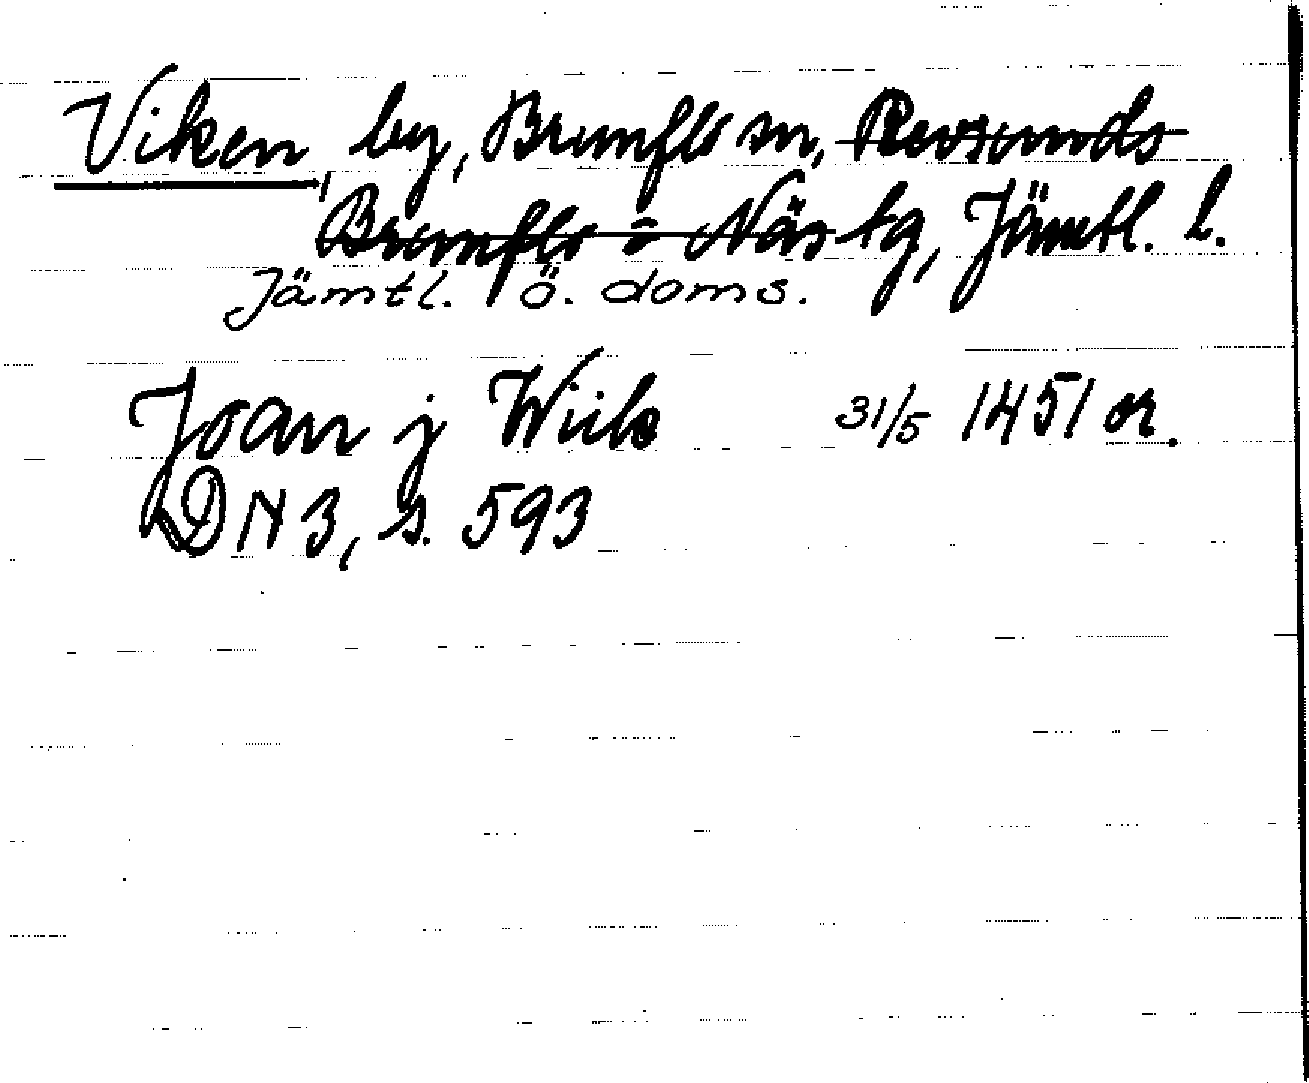 Viken, by, Brunflo sn, Revsunds
Brunflo o Näs tg, Jämtl. l.
Jämtl. ö. doms.
Joan j Wiik 31/5 1451 or.
DN 3, s. 593